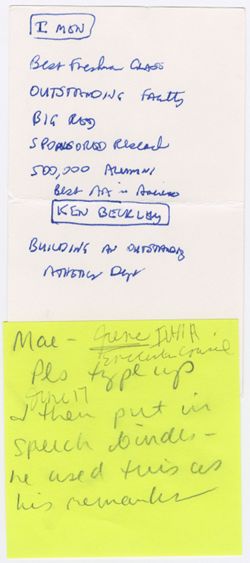 I MON
Best Freshmn Class
OUTSTANDING Faculty
BIG RED
SPONSORED Research
500,000 ALUMNI
Best AA in America
KEN BECKLEY
BUILDING AN OUTSTANDING
ATHLETICS Dept
Mae -
IUAA
Executive Council
Pls type up
June 17
& then put in
speech binder -
he used this as
his remarks